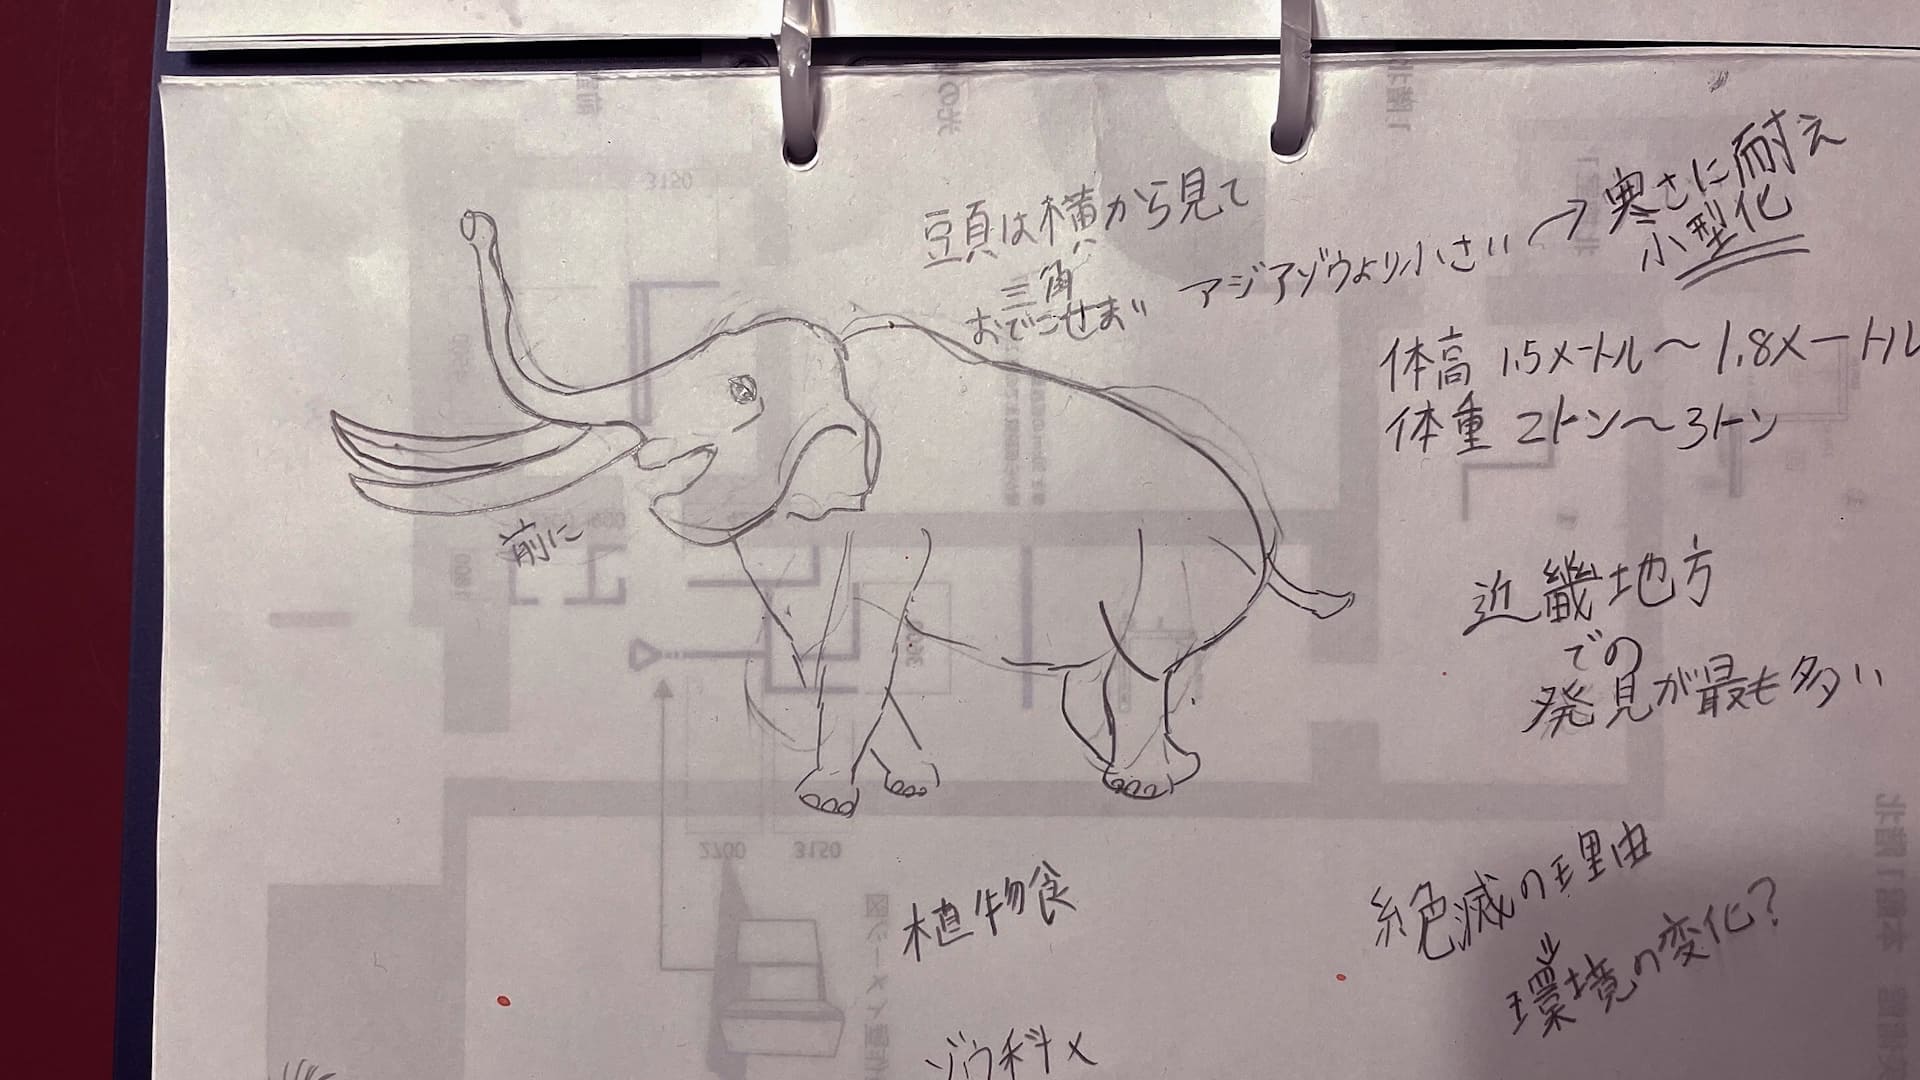 頭は横から見て
三角
おでこせまい
アジアゾウより小さい → 寒さに耐え
小型化
体高 1.5メートル〜1.8メートル
体重 2トン〜3トン
前に
近畿地方
での
発見が最も多い
植物食
絶滅の理由
環境の変化?
ゾウ科
3150
2700 3150